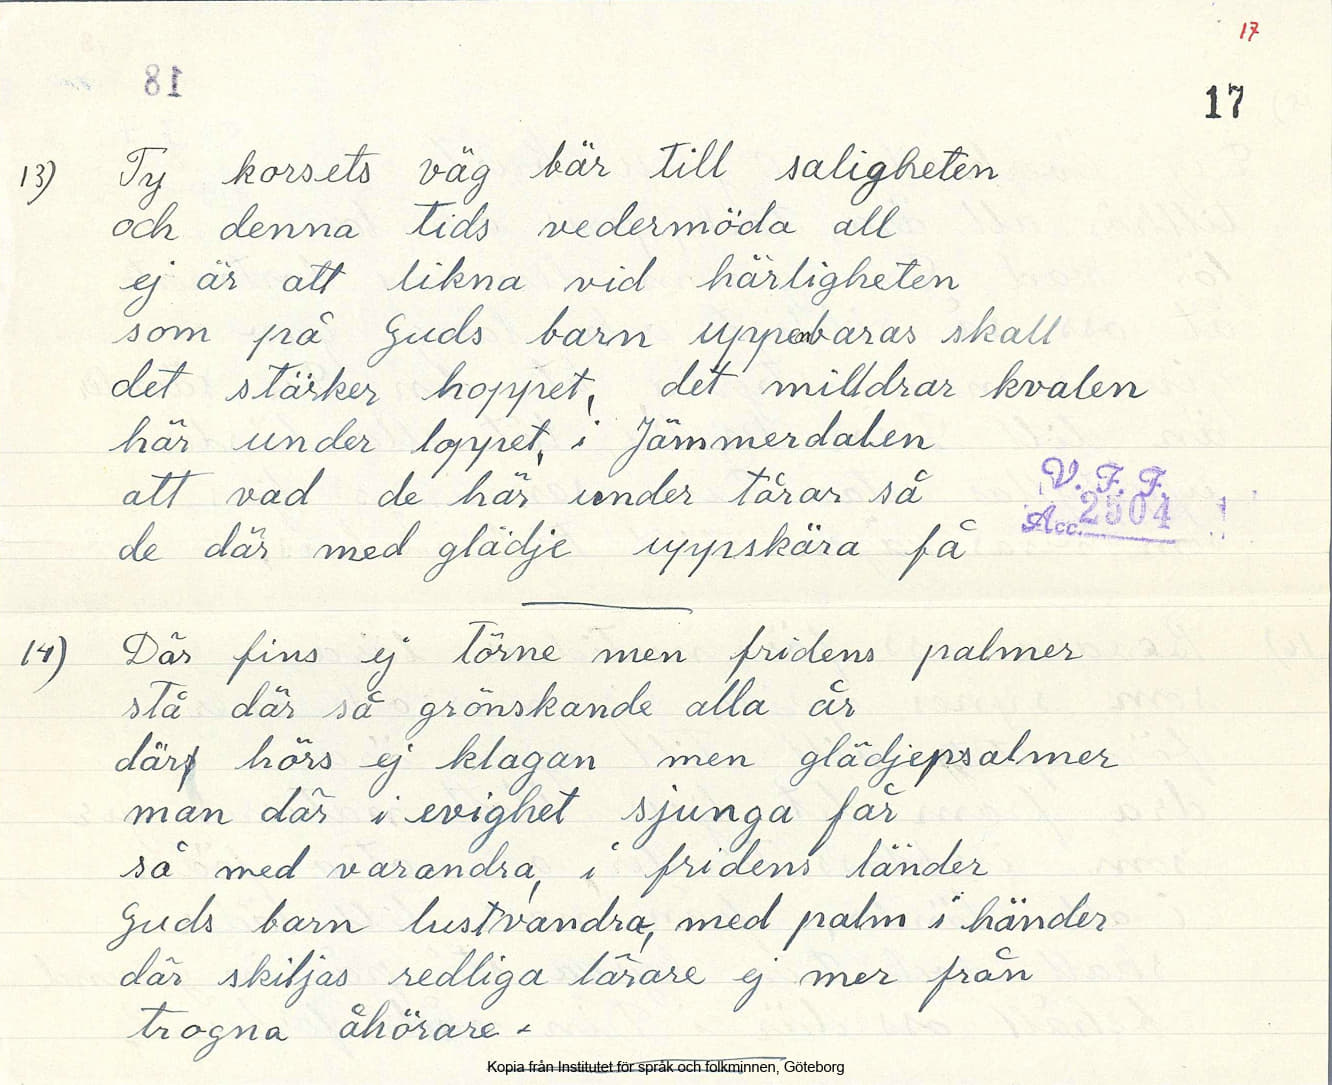 17
18
17
13) Ty korsets väg bär till saligheten
och denna tids vedermöda all
ej är att likna vid härligheten
som på Guds barn uppenbaras skall
det stärker hoppet, det milldrar kvalen
här under loppet, i Jämmerdalen
att vad de här under tårar så
de där med glädje uppskära få
V. F. F.
Acc. 2504
14) Där fins ej törne men fridens palmer
stå där så grönskande alla år
där hörs ej klagan men glädjepsalmer
man där i evighet sjunga får
så med varandra, i fridens länder
Guds barn lustvandra, med palm i händer
där skiljas redliga lärare ej mer från
trogna åhörare.
Kopia från Institutet för språk och folkminnen, Göteborg